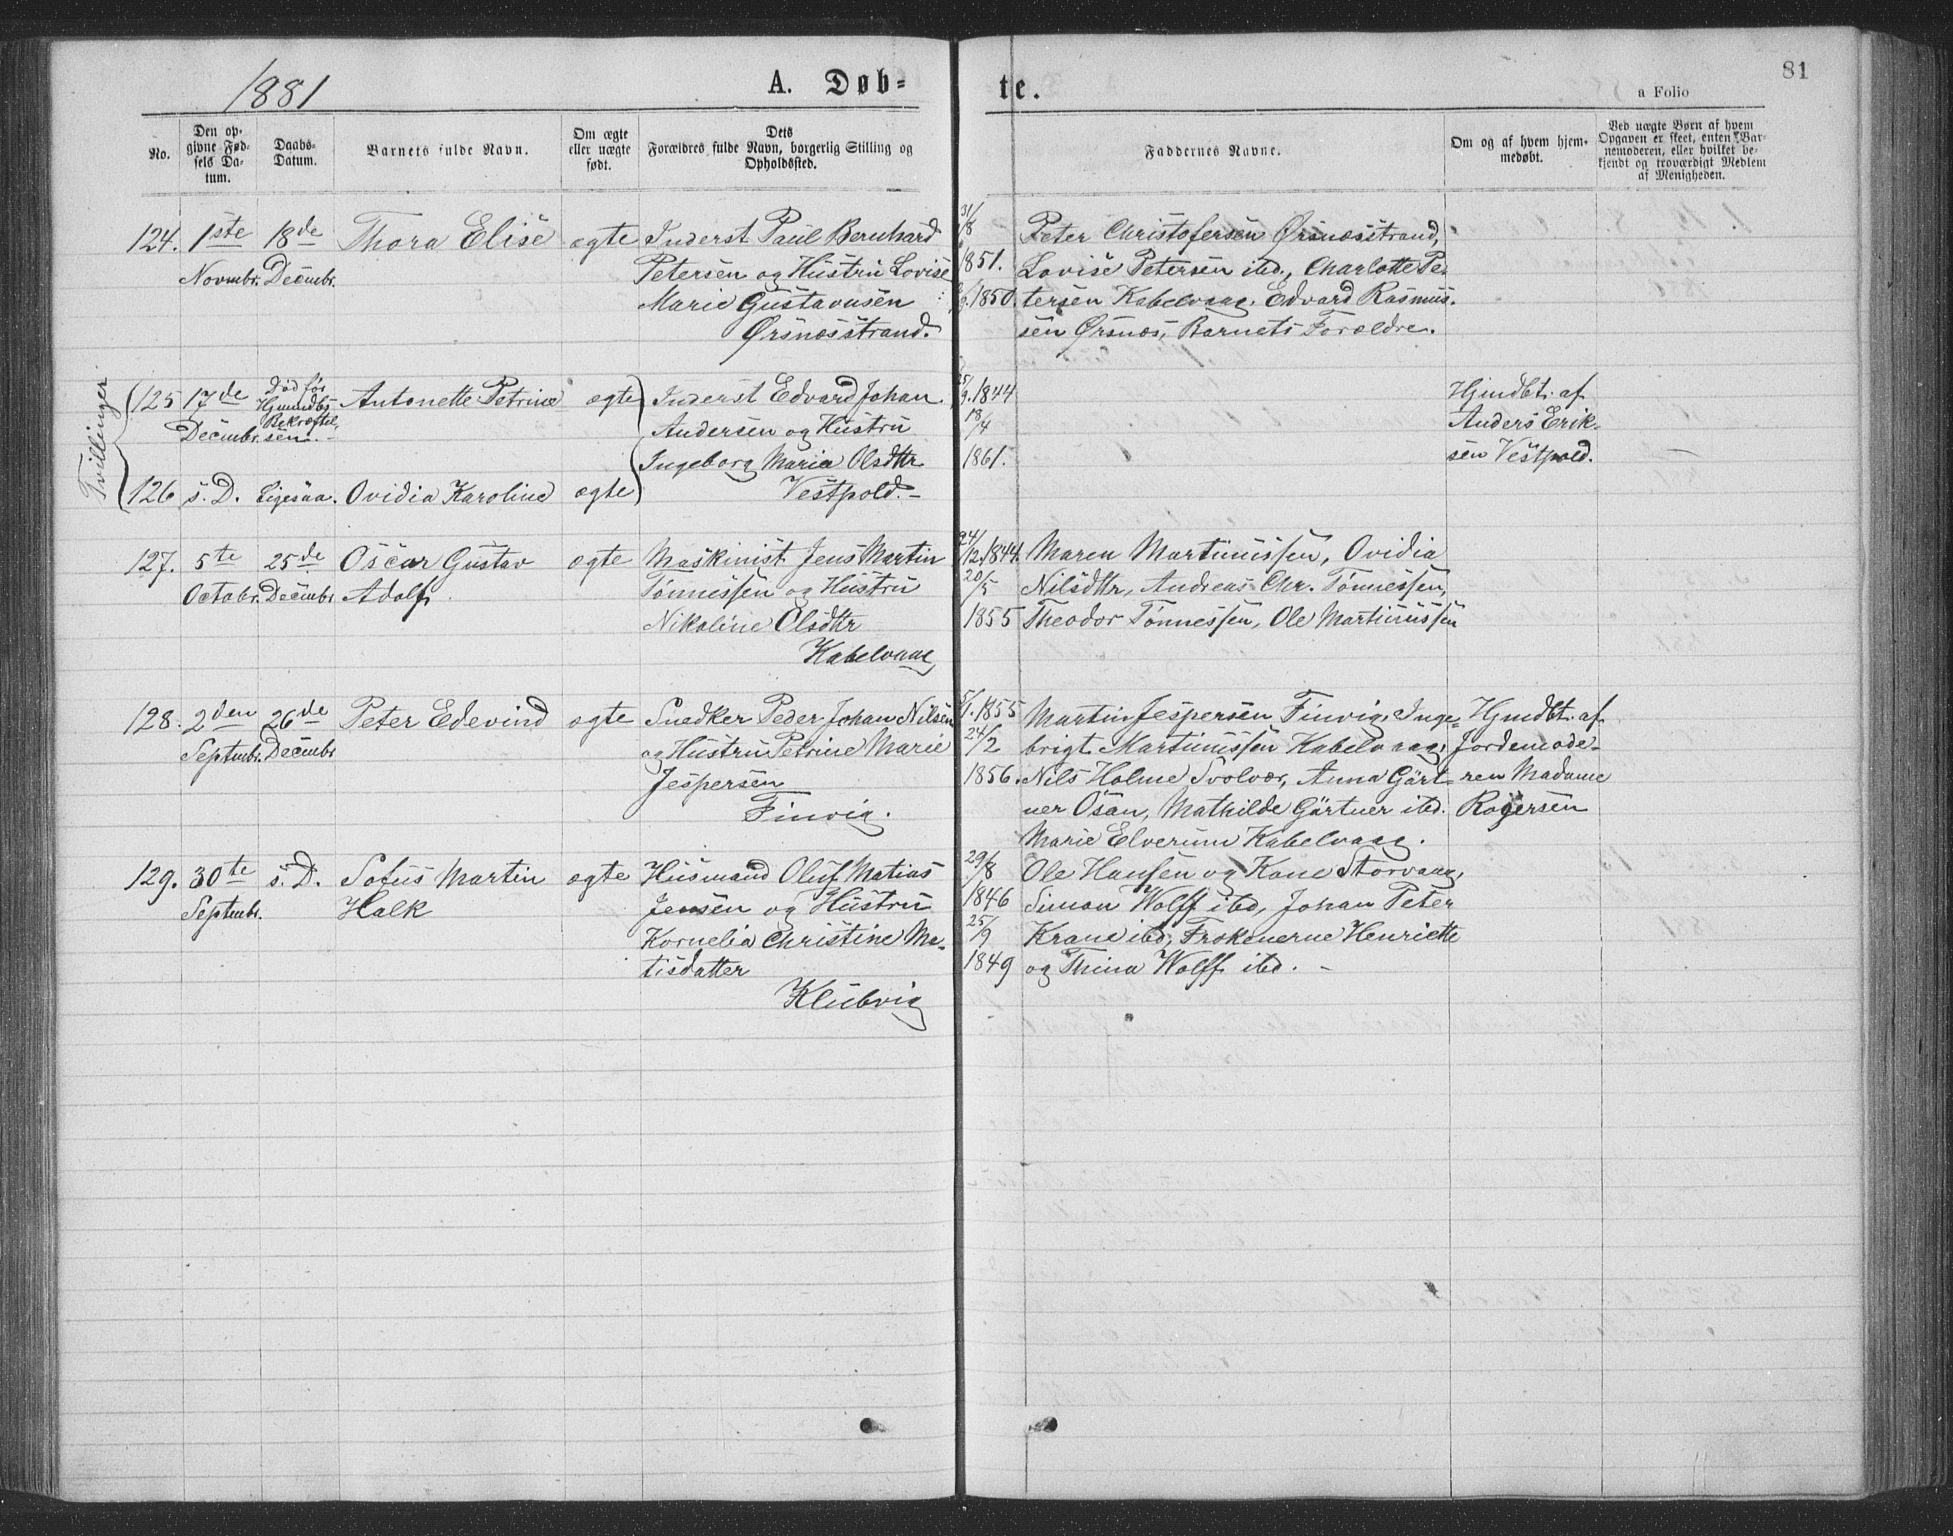 1881
A. Døb-
te.
81
a Folio
No.
Den op-
givne Fød-
sels Da-
tum.
Daabs-
Datum.
Barnets fulde Navn.
Om ægte
eller uægte
født.
Dets
Forældres fulde Navn, borgerlig Stilling og
Opholdssted.
Faddernes Navne.
Om og af hvem hjem-
medøbt.
Ved uægte Børn af hvem
Opgaven er skeet, enten Bar-
nemoderen, eller hvilket be-
kjendt og troværdigt Medlem
af Menigheden.
124. 1ste 18de Thora Elise ægte Inderst Paul Bernhard
Novmbr. Decmbr. Petersen og Hustru Lovise
Marie Gustavusen
Ørsnæsstrand.
31/8
1851.
1850.
Peter Christofersen Ørsnæsstrand,
Lovise Petersen ibd., Charlotte Pe-
tersen Kabelvaag. Edvard Rasmus-
sen Ørsnæs, Barnets Forældre.
Tvillinger
125 17de Død før Antonette Petrine ægte Inderst Edvard Johan
Hjmmdbs
Bekræftel-
Decmbr. sen. Andersen og Hustru
Ingeborg Maria Olsdttr
126 s. D. Ligesaa. Ovidia Karoline ægte Vestpold.
25/9. 1844
18/4
1861.
Hjmdbt. af
Anders Erik-
sen Vestpold.
127. 5te 25de Oscar Gustav ægte Maskinist Jens Martin
Octobr. Decmbr Adolf. Tønnessen og Hustru
Nikoline Olsdttr
Kabelvaag
24/12. 1844.
20/5
1855
Maren Martinussen, Ovidia
Nilsdttr, Andreas Chr. Tønnessen,
Theodor Tønnessen, Ole Martinussen
128. 2den 26de Peter Edevind ægte Snedker Peder Johan Nilsen
Septmbr. Decmbr og Hustru Petrine Marie
Jespersen
Finvig.
5/1. 1855
24/2
1856.
Martin Jespersen Finvig, Inge-
brigt Martinussen Kabelvaag,
Nils Holme Svolvær, Anna Gärt-
ner Osan, Mathilde Gärtner ibd.
Marie Elverum Kabelvaag.
Hjmdbt. af
Jordemode-
ren Madame
Rogersen
129. 30te s. D. Sofus Martin ægte Husmand Oluf Matias
Septmbr. Halk Jensen og Hustru
Kornelia Christine Ma-
tisdatter
Klubvig
29/8
1846
25/9
1849
Ole Hansen og Kone Storvaag,
Simon Wolff ibd, Johan Peter
Krane ibd, Frøkenerne Henriette
og Thina Wolff ibd.